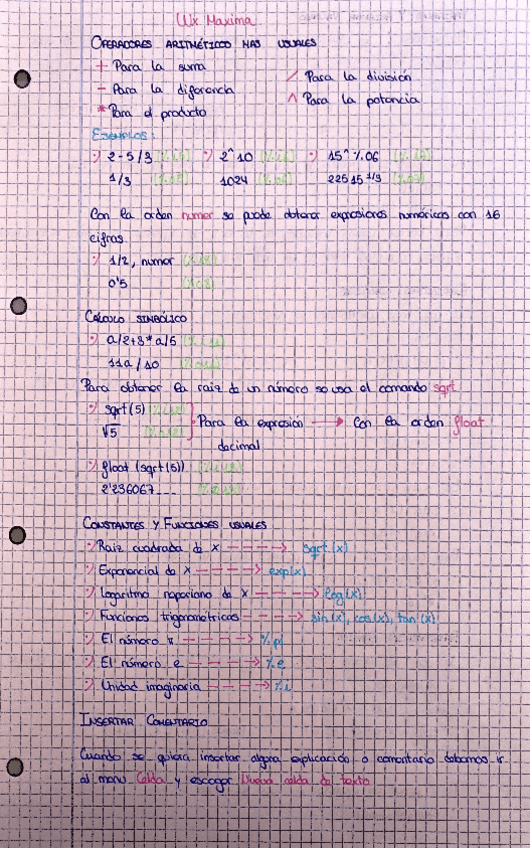 Wx Maxima
OPERADORES ARITMÉTICOS MAS USUALES
+ Para la suma
/ Para la división
- Para la diferencia
^ Para la potencia
* Para el producto
EJEMPLOS:
2-5/3 2^10 15^%.06
1/3 1024 225 15^1/3
Con la orden numer se puede obtener expresiones numéricas con 16
cifras
1/2, numer
0'5
CÁLCULO SIMBÓLICO
a/2+3*a/5
11a/10
Para obtener la raiz de un número se usa el comando sqrt
sqrt(5)
√5
Para la expresión → Con la orden float
decimal
float (sqrt(5))
2'236067...
CONSTANTES Y FUNCIONES USUALES
Raiz cuadrada de x ----> sqrt(x)
Exponencial de x ----> exp(x)
Logaritmo neperiano de x ----> log(x)
Funciones trigonométricas ----> sin(x), cos(x), tan(x)
El número π ----> %pi
El número e ----> %e
Unidad imaginaria ----> %i
INSERTAR COMENTARIO
Cuando se quiera insertar alguna explicación o comentario debemos ir
al menu Celda y escoger Nueva celda de texto